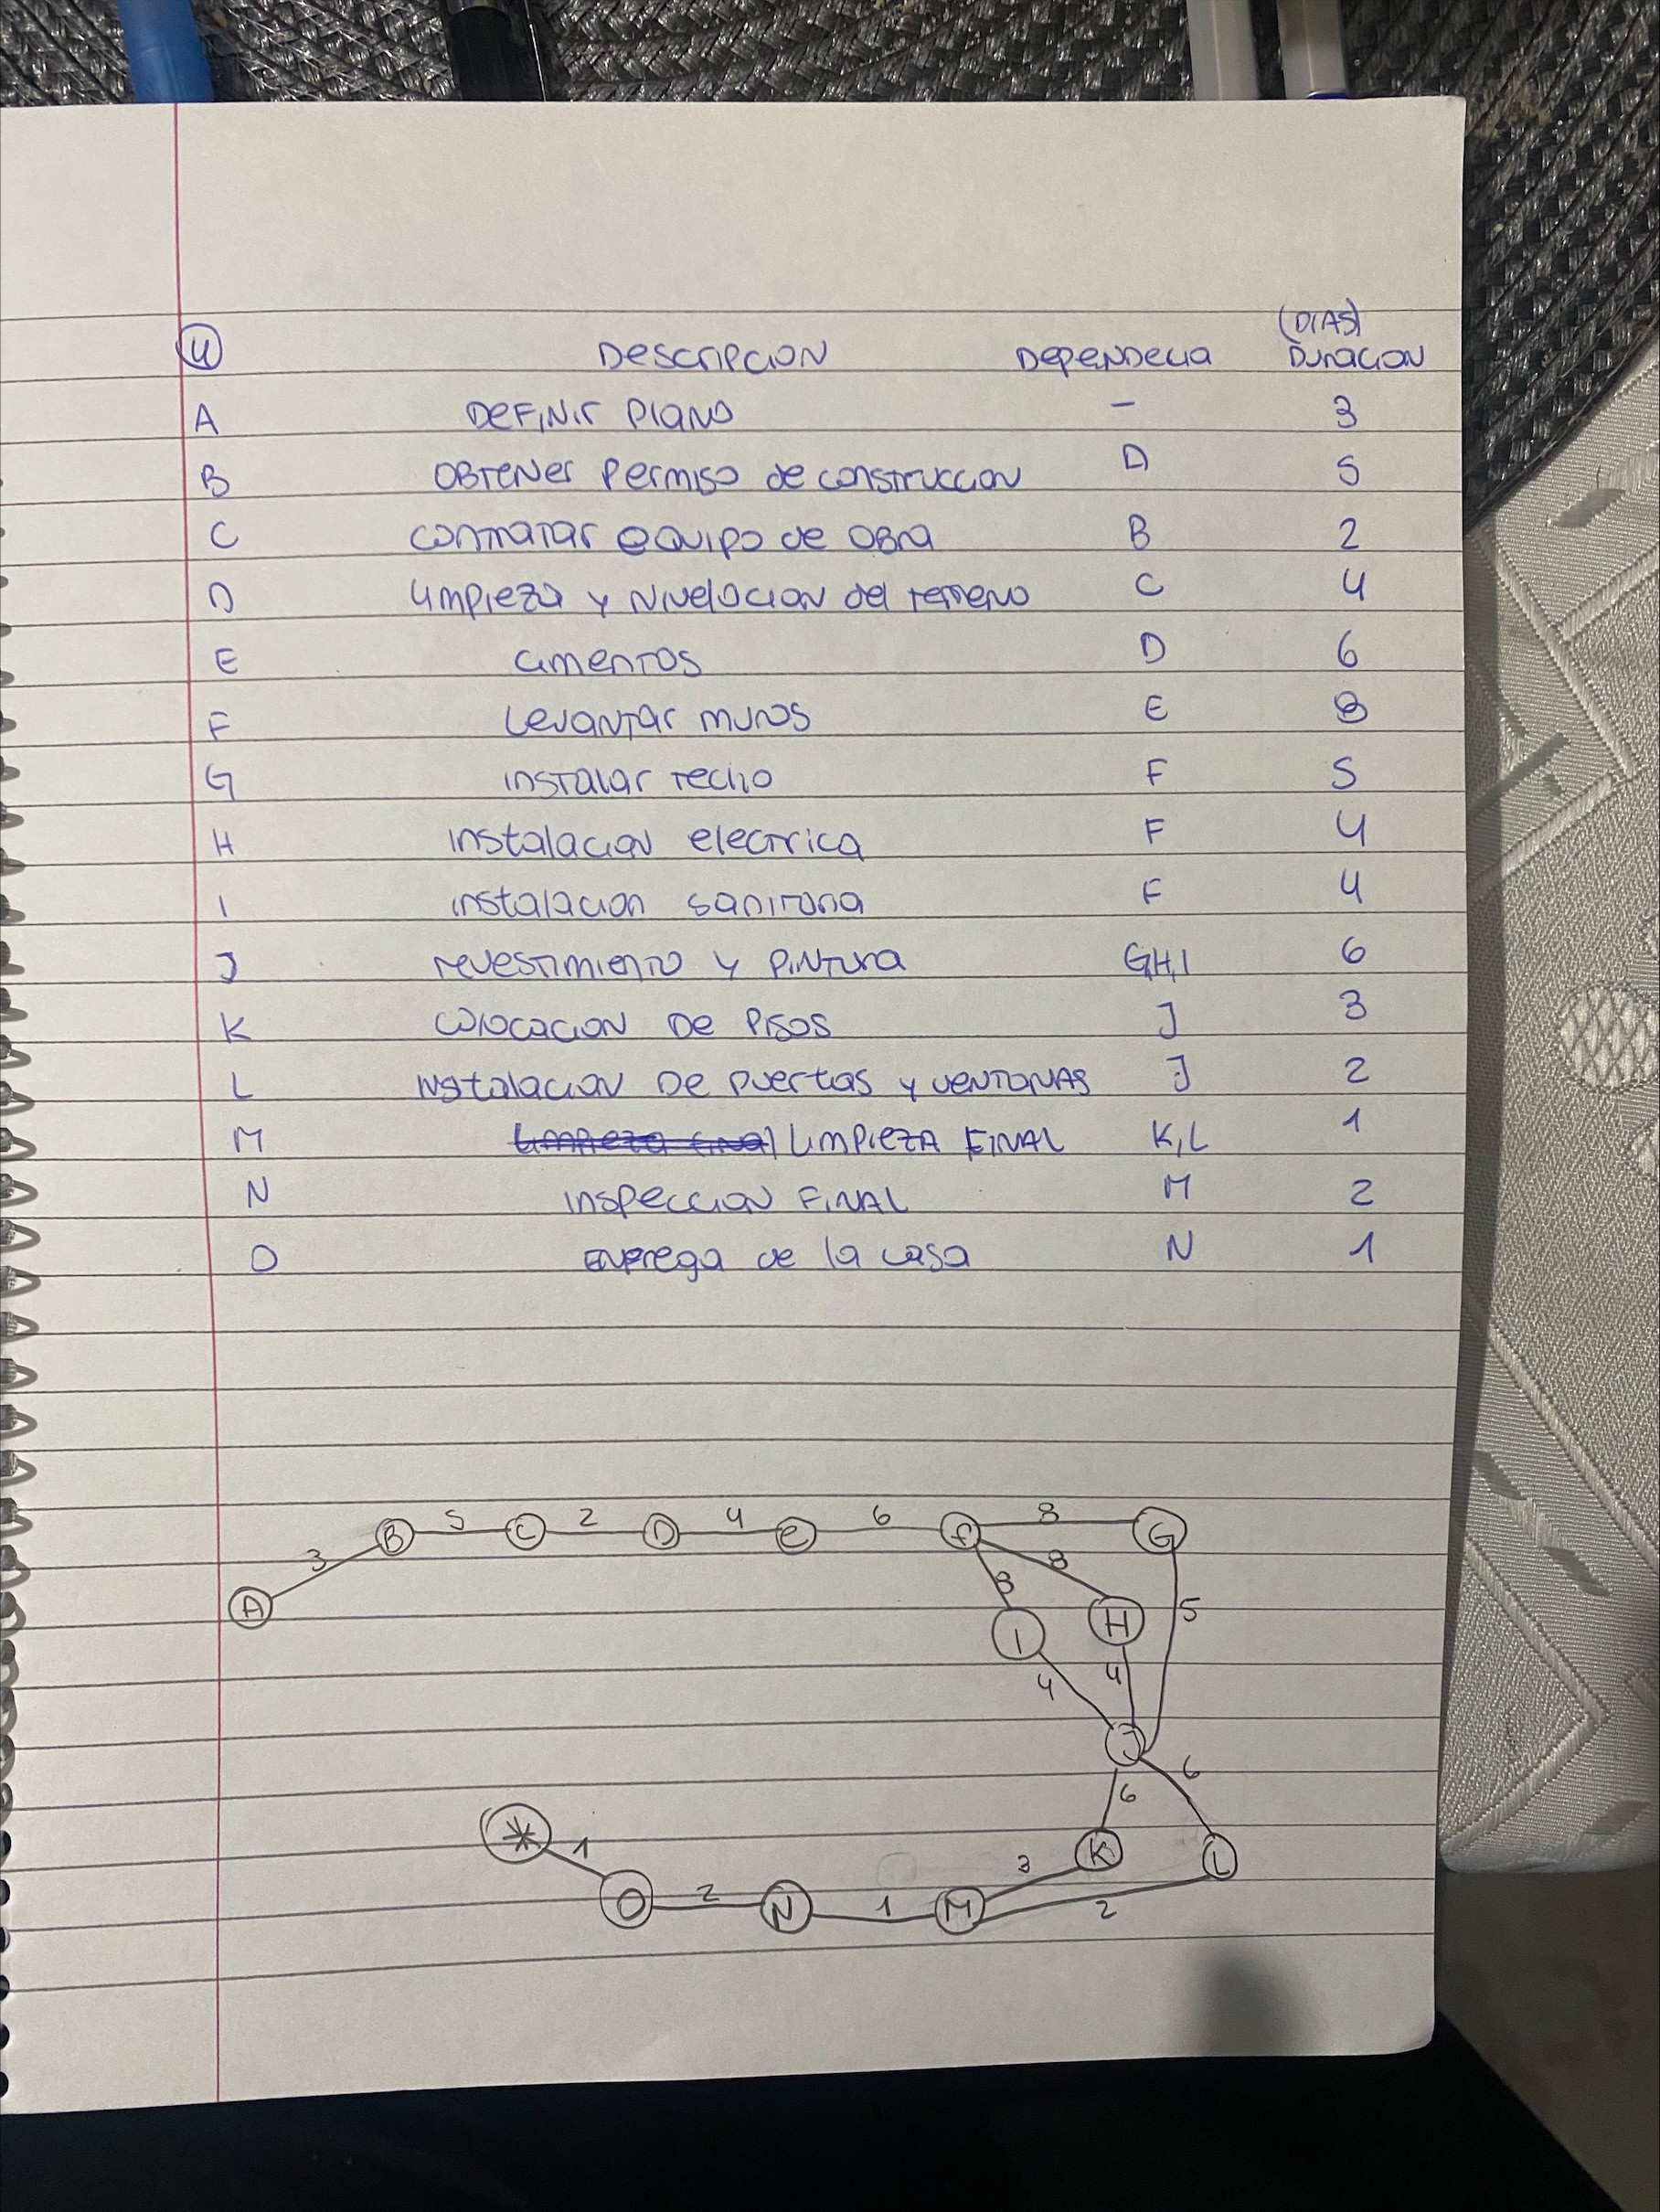 4
(DIAS)
DESCRIPCION DEPENDECIA DURACION
A DEFINIR PLANO - 3
B OBTENER PERMISO de CONSTRUCCION D 5
C CONTRATAR EQUIPO de OBRA B 2
D LIMPIEZA Y NIVELACION del TERRENO C 4
E CIMENTOS D 6
F LEVANTAR MUROS E 8
G INSTALAR TECHO F 5
H Instalacion electrica F 4
I instalacion sanitaria F 4
J revestimiento y PINTURA G,H,I 6
K COLOCACION De PISOS J 3
L INstalacion De Puertas y VENTANAS J 2
M Limpieza final LIMPIEZA FINAL K,L 1
N INSPECCION FINAL M 2
O Entrega de la casa N 1
B 5 C 2 D 4 e 6 F 8 G
3 8 8
A I H 5
4 4
J
6 6
* 1 3 K L
O 2 N 1 M 2